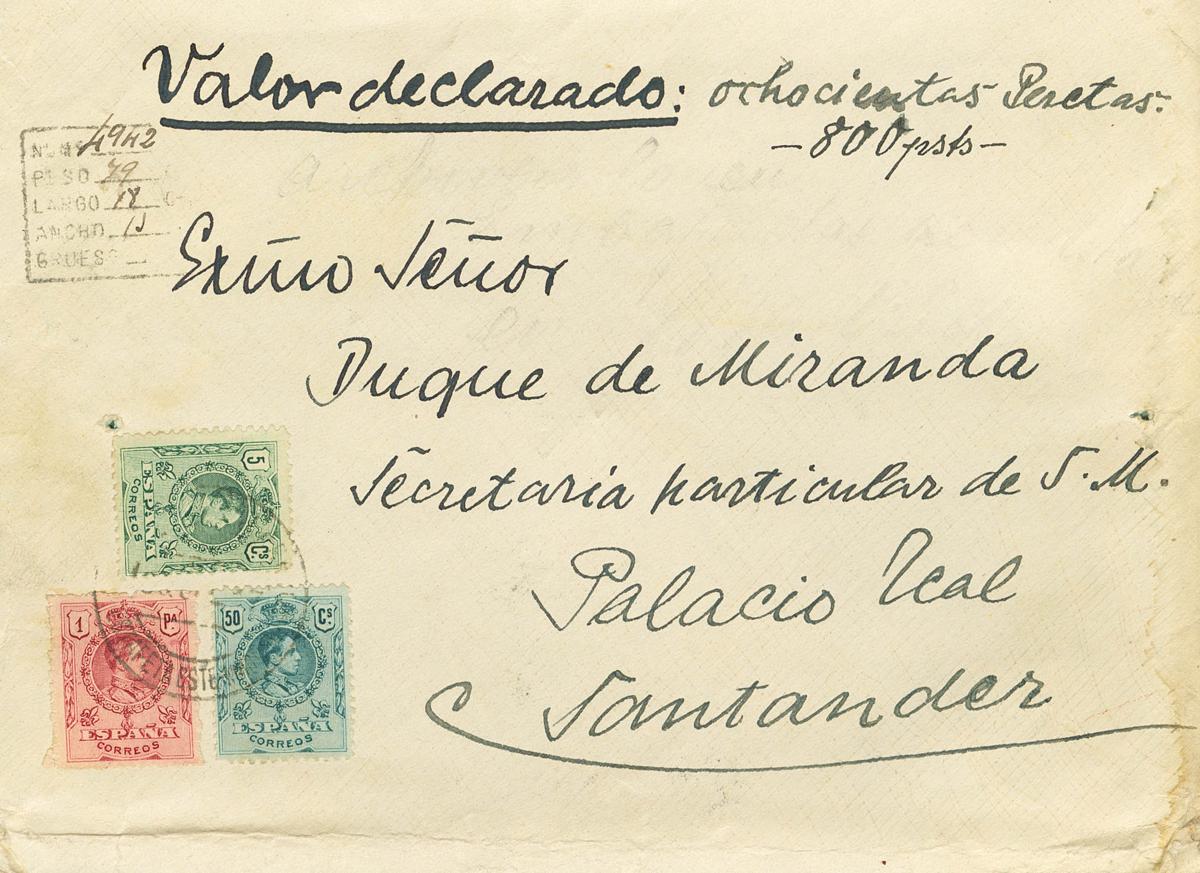 Valor declarado: ochocientas Pesetas.
-800 psts-
NUM 4942
PESO 79
LARGO 18
ANCHO
GRUESO
Exm̃o Señor
Duque de Miranda
Secretaria particular de S. M.
Palacio Real
Santander
5 Cs
ESPAÑA
CORREOS
1 PA
ESPAÑA
CORREOS
50 Cs
ESPAÑA
CORREOS